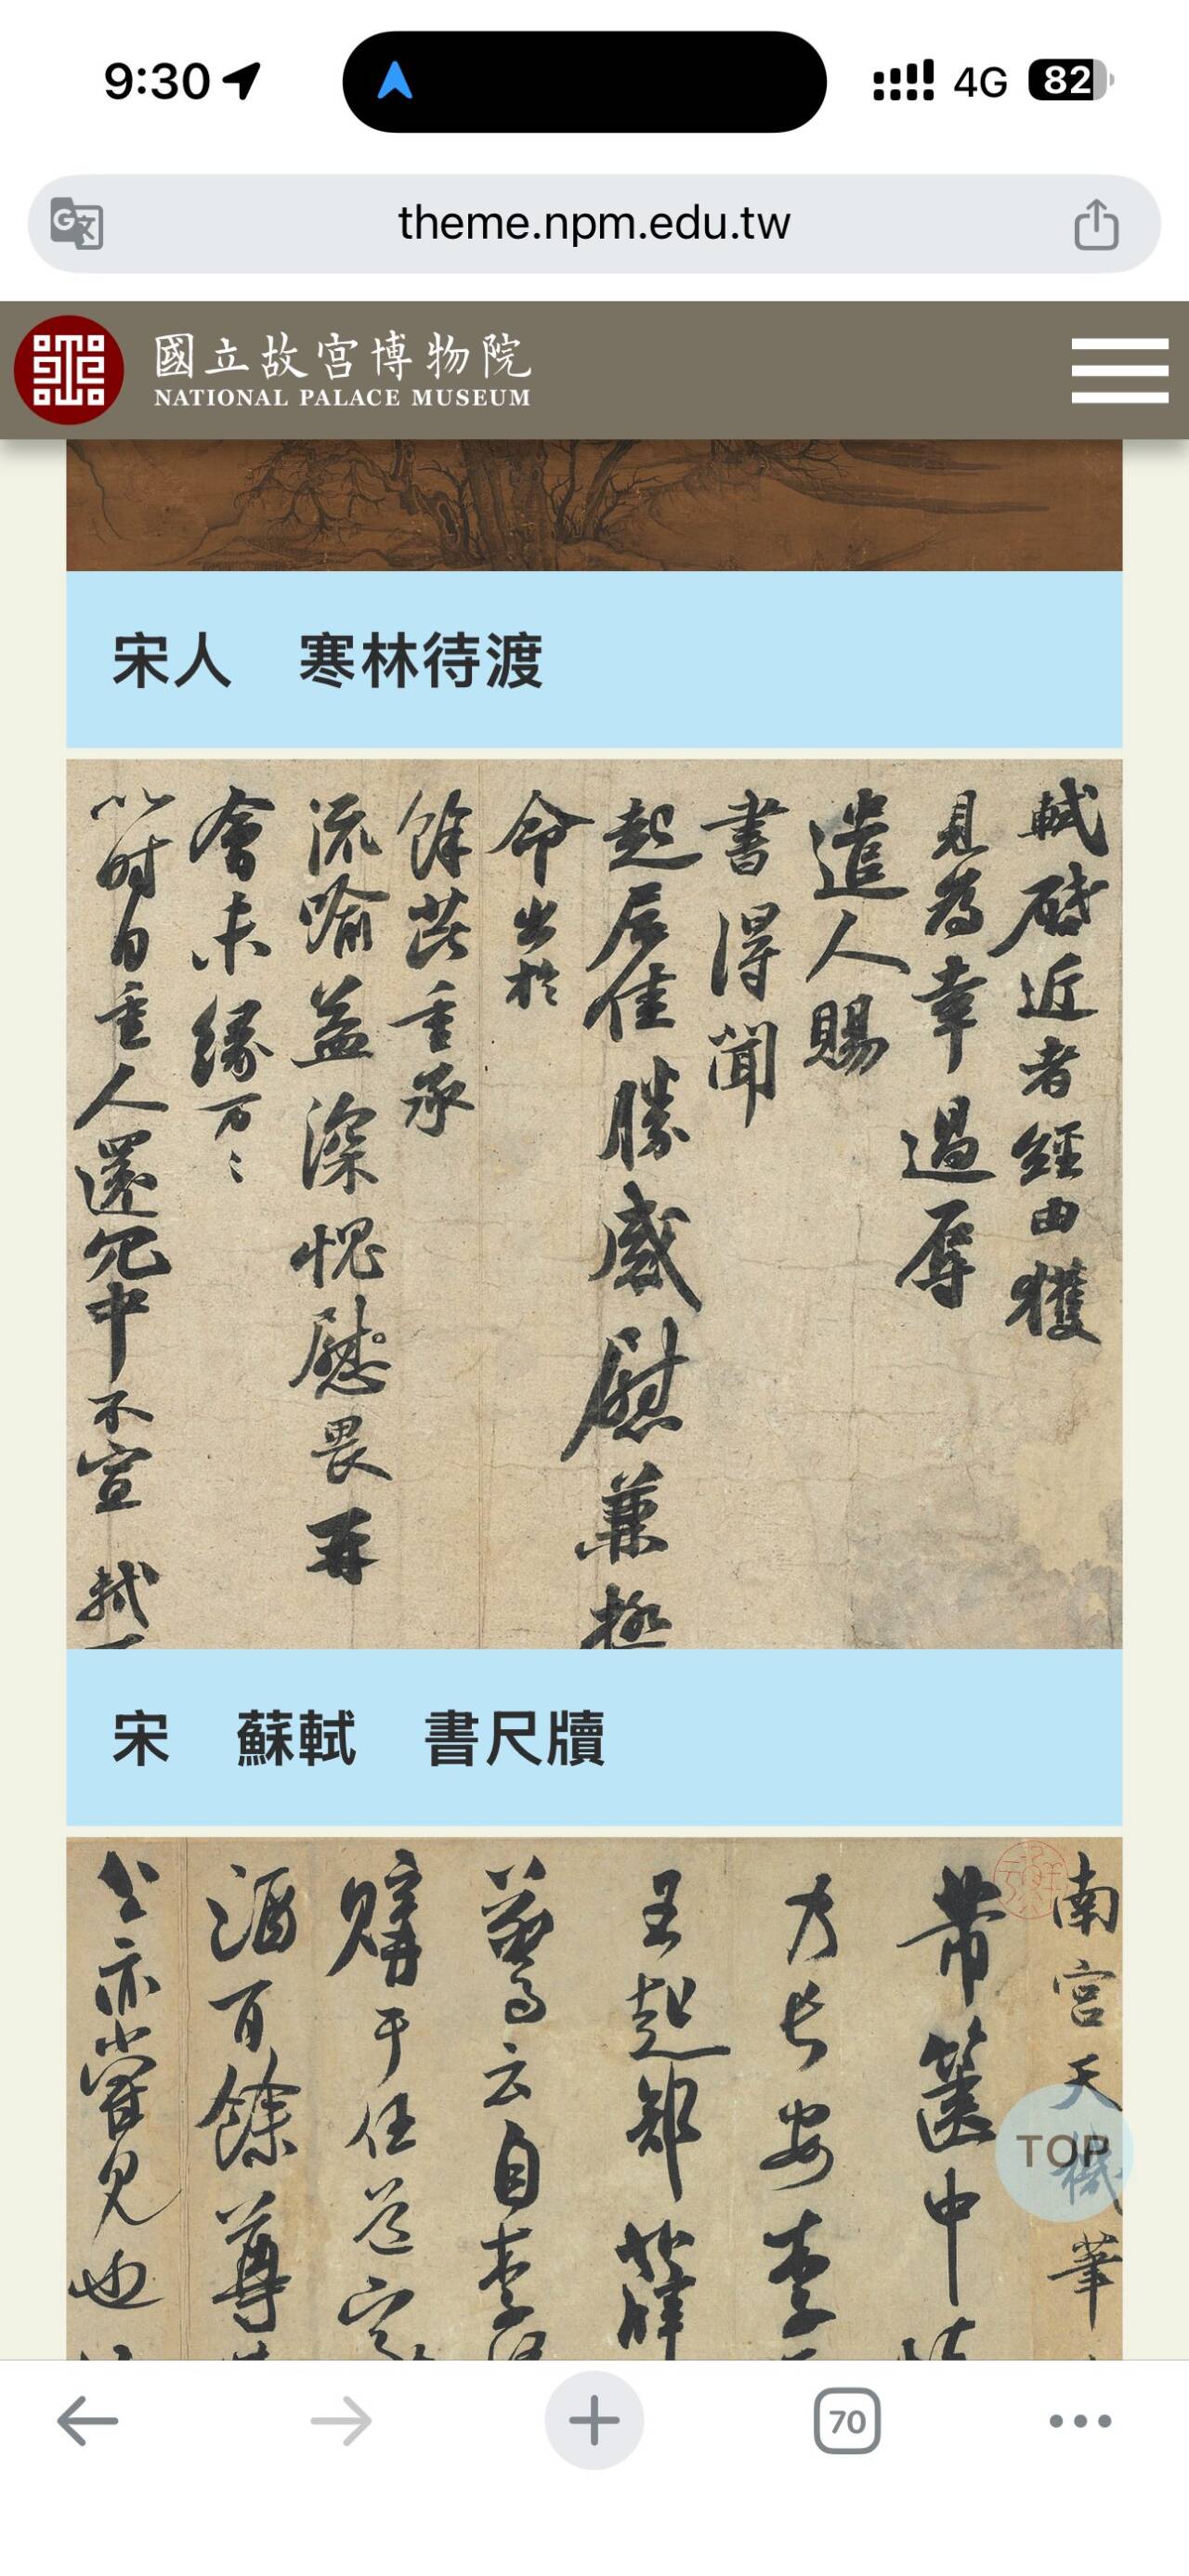 9:30
4G
82
theme.npm.edu.tw
國立故宮博物院
NATIONAL PALACE MUSEUM
宋人　寒林待渡
軾啟近者經由獲
見為幸過辱
遣人賜
書得聞
起居佳勝感慰兼極
命出於
餘芘重承
流喻益深愧畏再
會未緣万々
以時自重人還冗中不宣 軾
宋　蘇軾　書尺牘
南宮天機筆
芾篋中
乃長安李
王起部薛
葛云自李
購于任道
酒百餘尊
公亦嘗見也
TOP
70